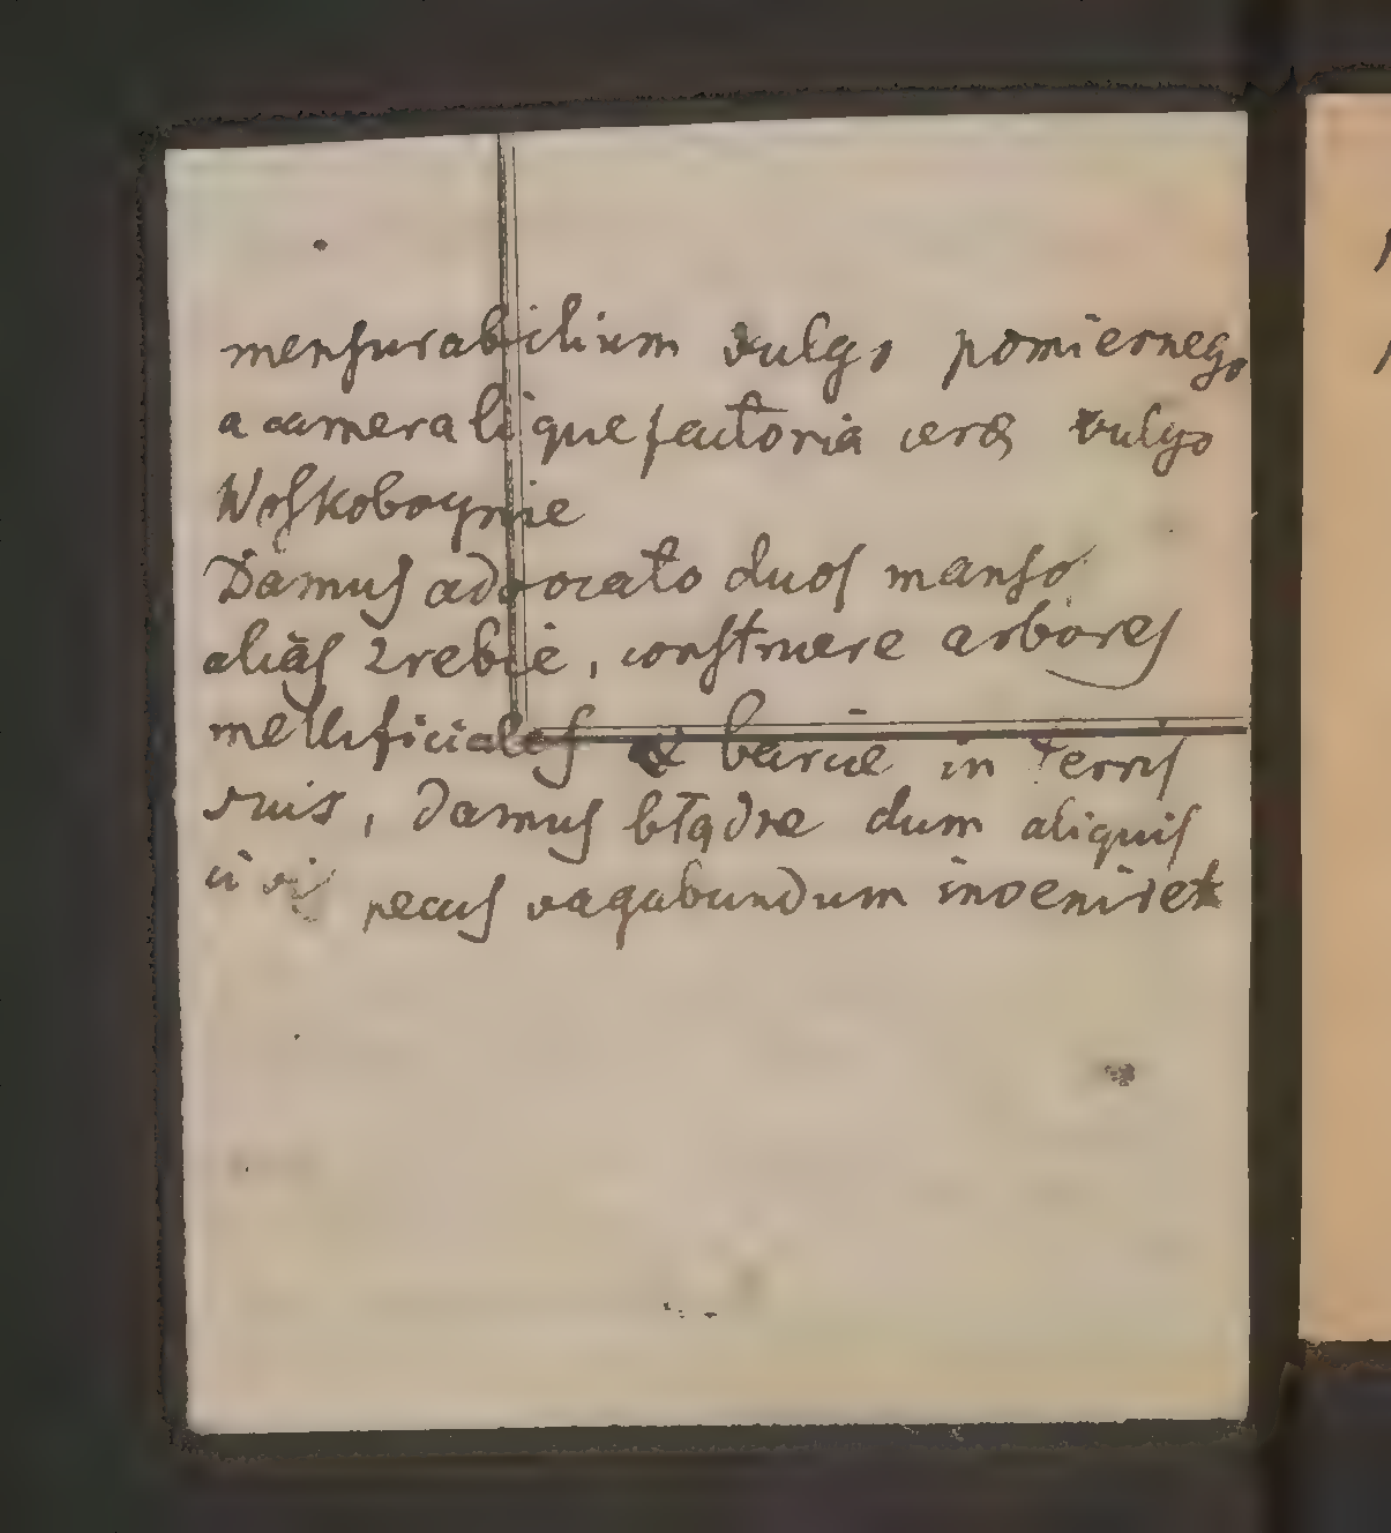 mensurabilium vulgo pomiernego
a camerali que factoria ceræ vulgo
Woskoboynie
Damus advocato duos manso
aliàs zrebie, construere arbores
mellificiales & barcie in terris
suis, damus błądne dum aliquis
pecus vagabundum inveniret